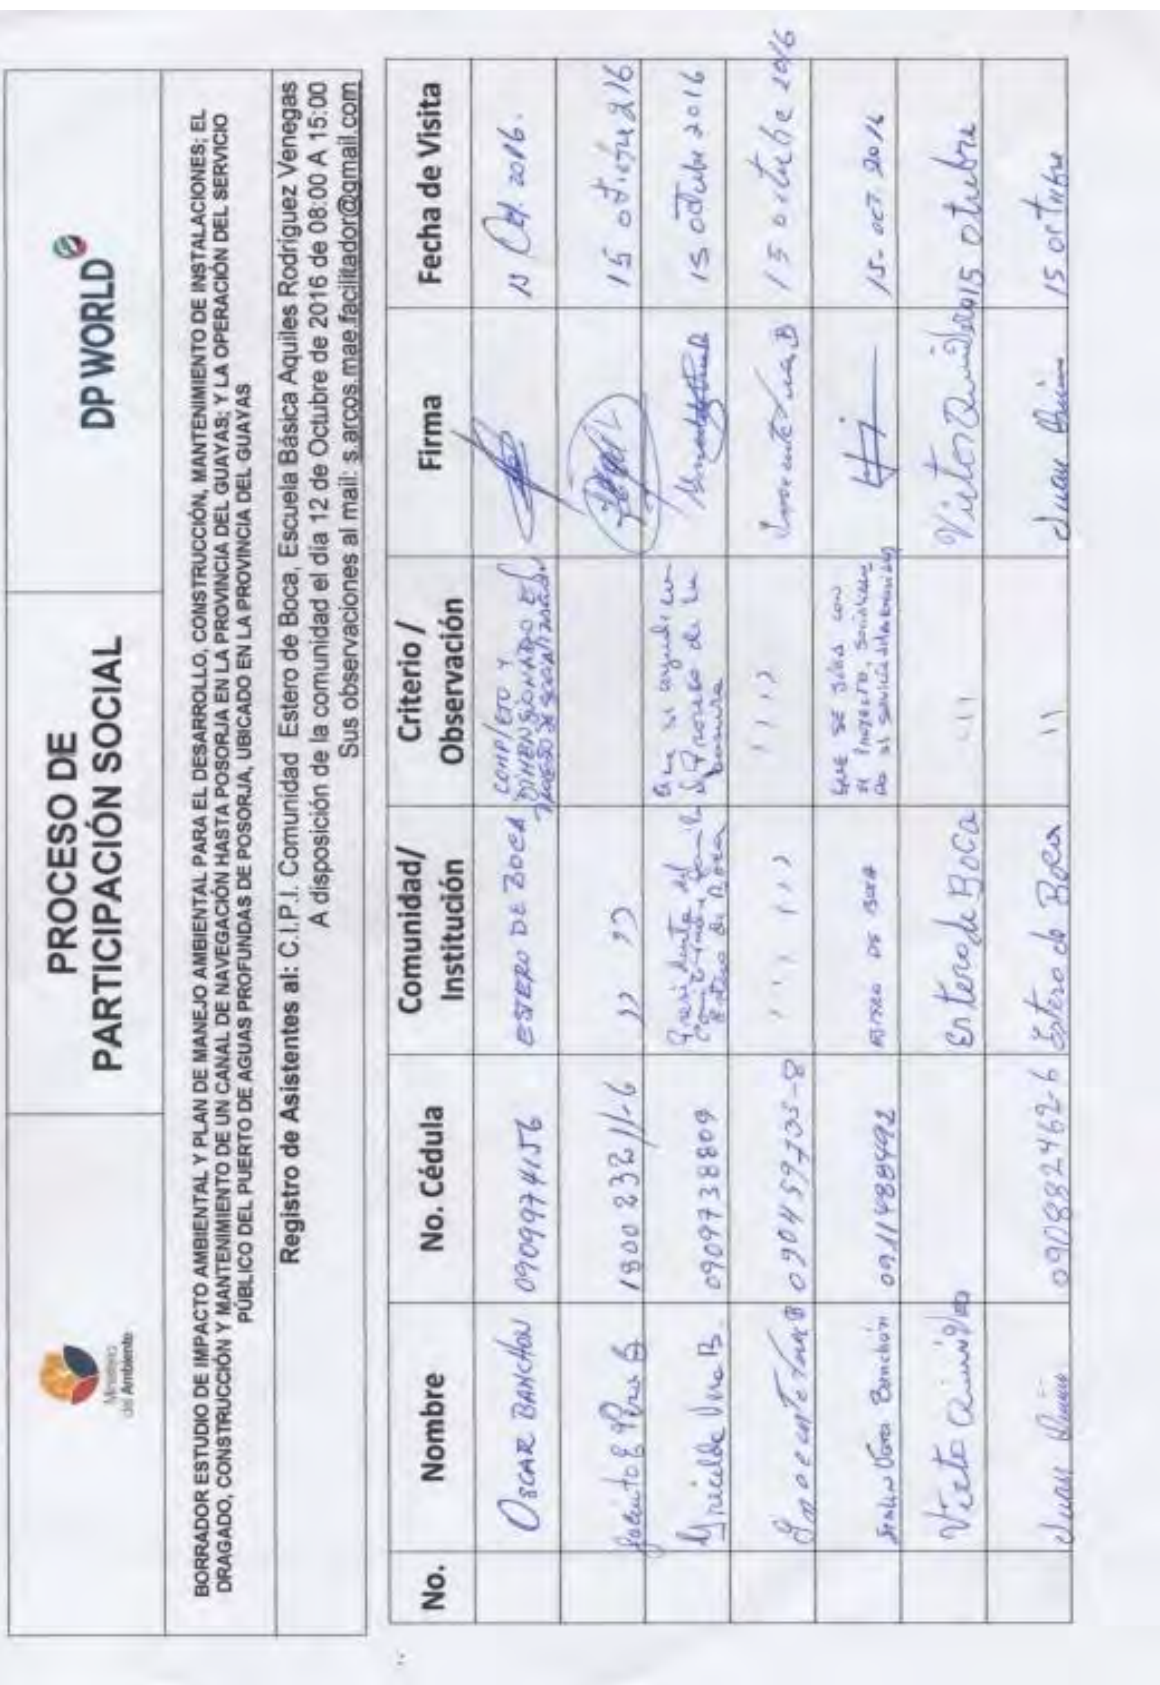 Ministerio
del Ambiente
PROCESO DE
PARTICIPACIÓN SOCIAL
DP WORLD
BORRADOR ESTUDIO DE IMPACTO AMBIENTAL Y PLAN DE MANEJO AMBIENTAL PARA EL DESARROLLO, CONSTRUCCIÓN, MANTENIMIENTO DE INSTALACIONES; EL
DRAGADO, CONSTRUCCIÓN Y MANTENIMIENTO DE UN CANAL DE NAVEGACIÓN HASTA POSORJA EN LA PROVINCIA DEL GUAYAS; Y LA OPERACIÓN DEL SERVICIO
PÚBLICO DEL PUERTO DE AGUAS PROFUNDAS DE POSORJA, UBICADO EN LA PROVINCIA DEL GUAYAS
Registro de Asistentes al: C.I.P.I. Comunidad Estero de Boca, Escuela Básica Aquiles Rodríguez Venegas
A disposición de la comunidad el día 12 de Octubre de 2016 de 08:00 A 15:00
Sus observaciones al mail: s.arcos.mae.facilitador@gmail.com
No. Nombre No. Cédula Comunidad/ Institución Criterio / Observación Firma Fecha de Visita
OSCAR BANCHON 0909974156 ESTERO DE BOCA COMPLETO Y DIMENSIONADO EL PROCESO DE SOCIALIZACIÓN 15 Oct. 2016.
180023211-6 ,, ,, 15 216
Vera B. 0909738809 Presidenta del Estero de Boca Que se 15 octubre 2016
090459735-8 , , , , , , , , , 15 octubre 2016
Vera Banchón 0911488492 ESTERO DE BOCA QUE SE SIGA CON EL PROYECTO, 15- OCT. 2016
Victo Estero de Boca Victor 15 otubre
Juan 090882462-6 Estero de Boca Juan 15 octubre